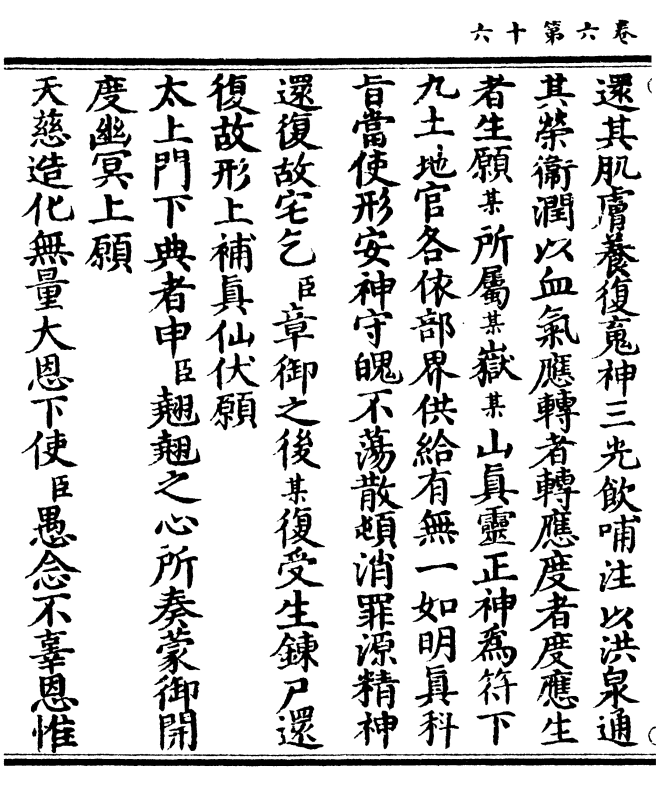 卷六第十六
還其肌膚養復䰟神三光飲哺注以洪泉通
其榮衞潤以血氣應轉者轉應度者度應生
者生願某所屬某嶽某山真靈正神爲符下
九土地官各依部界供給有無一如明真科
旨當使形安神守魄不蕩散頓消罪源精神
還復故宅乞臣章御之後某復受生鍊尸還
復故形上補真仙伏願
太上門下典者申臣翹翹之心所奏蒙御開
度幽冥上願
天慈造化無量大恩下使臣愚念不辜恩惟